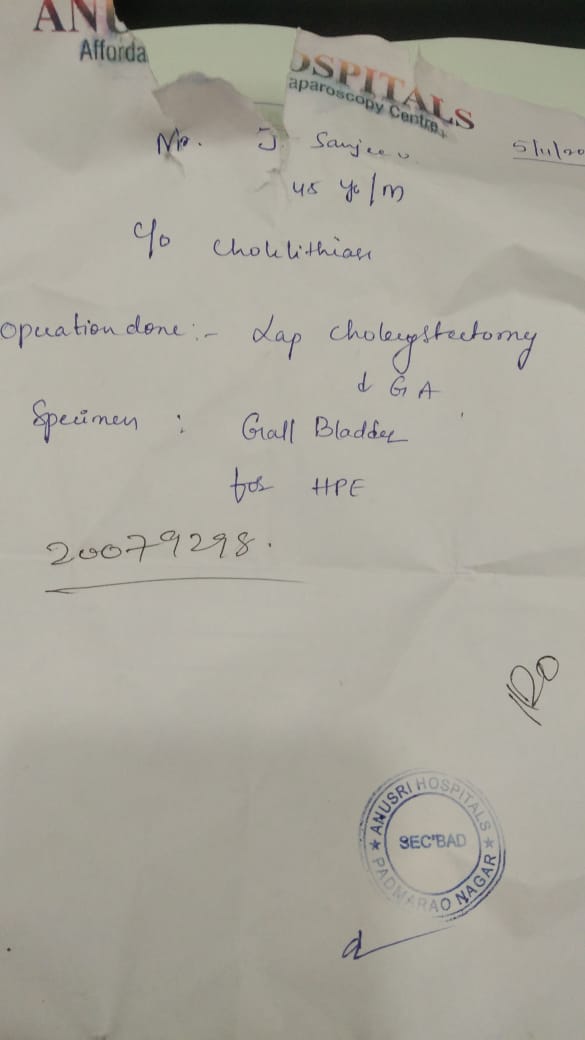 AN OSPITALS
Afforda aparoscopy Centre
Mr. J. Sanjeev 5/11/20
45 ys/m
c/o Cholilithiasis
Operation done :- Lap Cholecystectomy
GA
Specimen : Gall Bladder
for HPE
20079298.
ANUSRI HOSPITALS
SEC'BAD
PADMARAO NAGAR